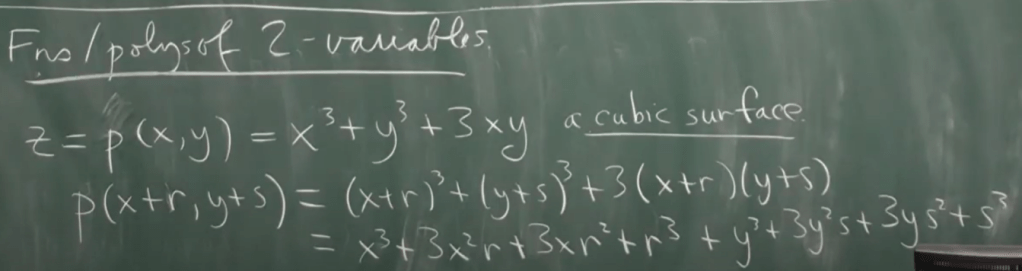 Fns/polys of 2-variables.
z = p(x,y) = x³ + y³ + 3xy a cubic surface.
p(x+r, y+s) = (x+r)³ + (y+s)³ + 3(x+r)(y+s)
= x³ + 3x²r + 3xr² + r³ + y³ + 3y²s + 3ys² + s³